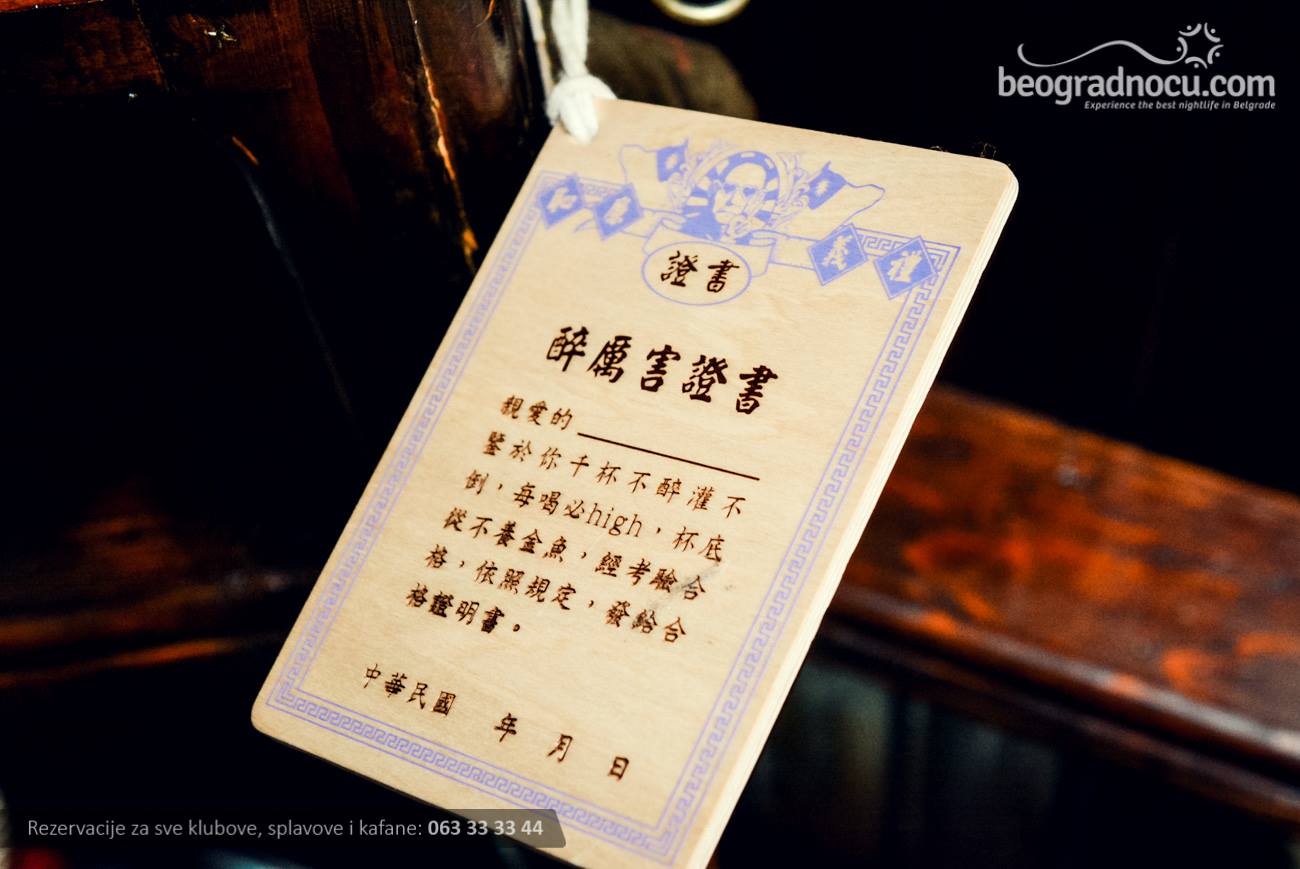 beogradnocu.com
Experience the best nightlife in Belgrade
證書
醉厲害證書
親愛的
鑒於你千杯不醉灌不
倒，每喝必high，杯底
從不養金魚，經考驗合
格，依照規定，發給合
格證明書。
中華民國 年 月 日
Rezervacije za sve klubove, splavove i kafane: 063 33 33 44